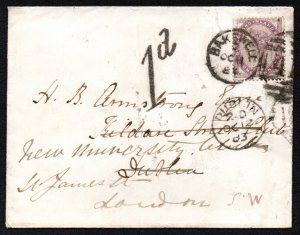 1d
BAKEWELL
H. B. Armstrong Esq
Kildare Street Club
New University Club
DUBLIN
83
St James St
Dublin
London S W